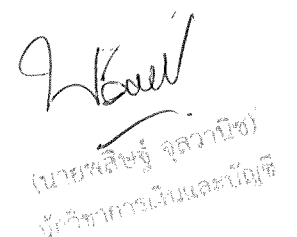 (นายพสิษฐ์ จุลวานิช)
นักวิชาการเงินและบัญชี